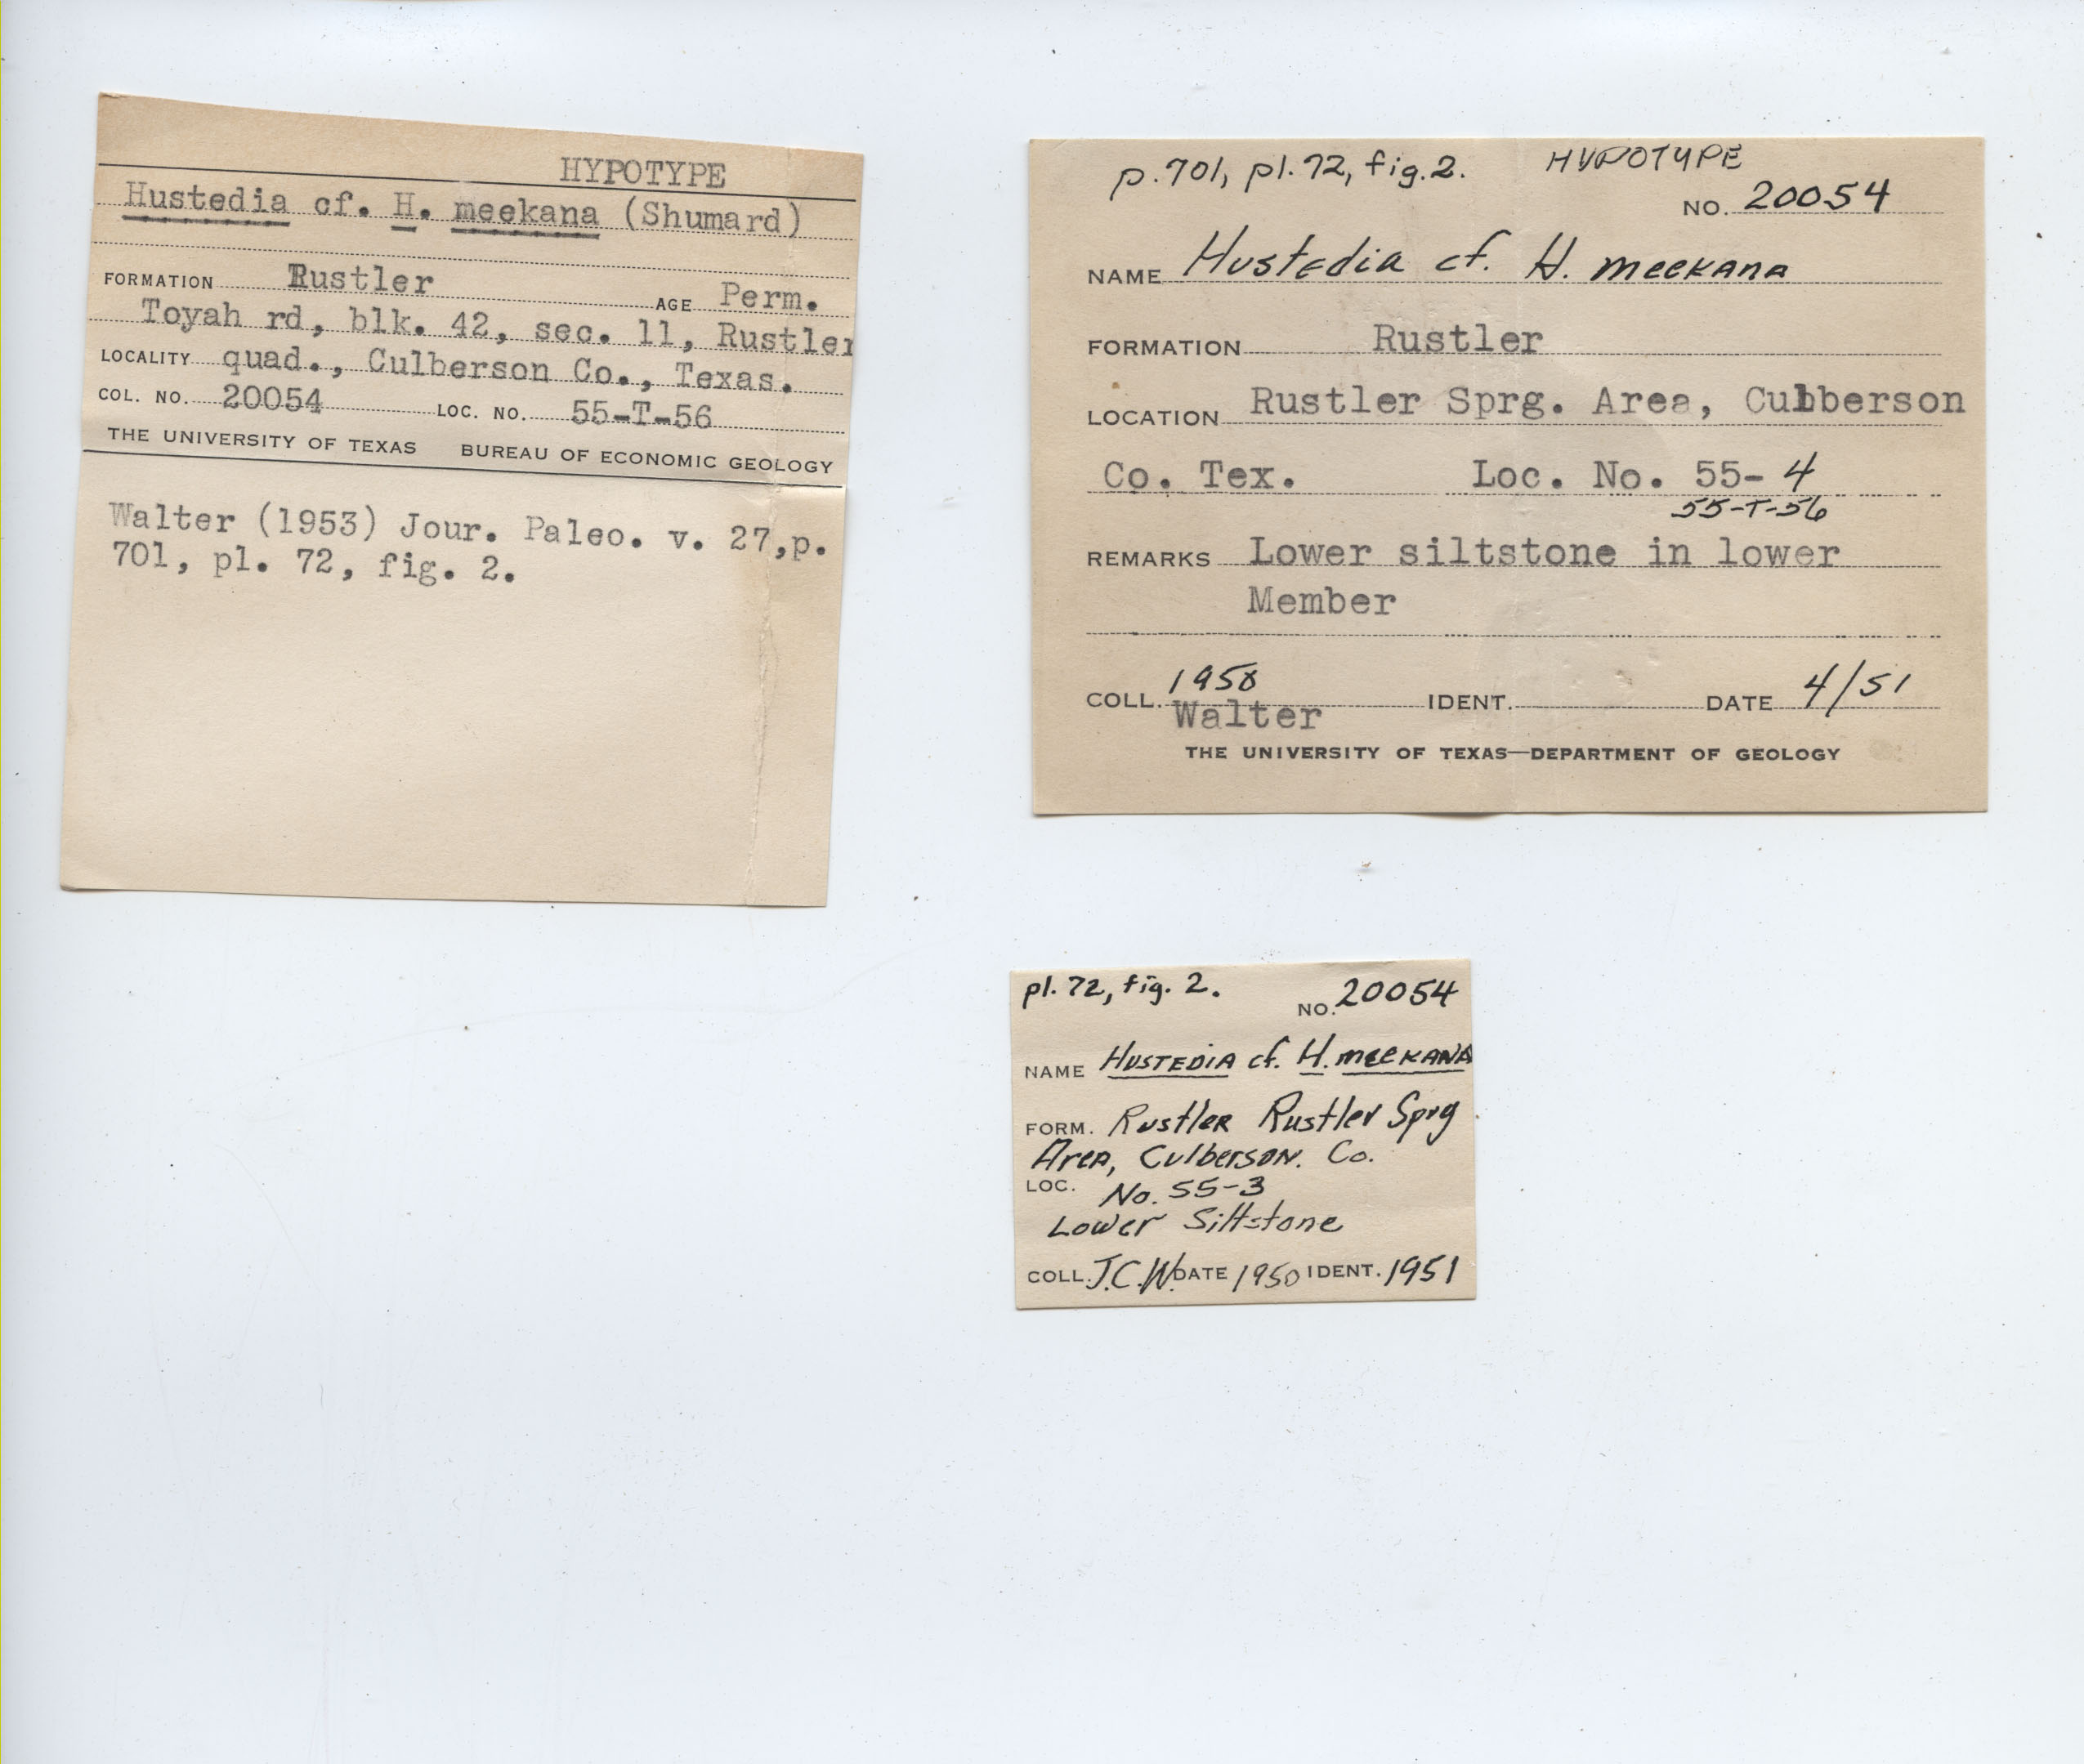 HYPOTYPE
Hustedia cf. H. meekana (Shumard)
FORMATION Rustler AGE Perm.
Toyah rd, blk. 42, sec. 11, Rustler
LOCALITY quad., Culberson Co., Texas.
COL. NO. 20054 LOC. NO. 55-T-56
THE UNIVERSITY OF TEXAS BUREAU OF ECONOMIC GEOLOGY
Walter (1953) Jour. Paleo. v. 27,p.
701, pl. 72, fig. 2.
p.701, pl.72, fig.2. HYPOTYPE
NO. 20054
NAME Hustedia cf. H. meekana
FORMATION Rustler
LOCATION Rustler Sprg. Area, Culberson
Co. Tex. Loc. No. 55-4
55-T-56
REMARKS Lower siltstone in lower
Member
1950
COLL. Walter IDENT. DATE 4/51
THE UNIVERSITY OF TEXAS—DEPARTMENT OF GEOLOGY
pl. 72, fig. 2. NO. 20054
NAME Hustedia cf. H. meekana
FORM. Rustler Rustler Sprg
Area, Culberson. Co.
LOC. No. 55-3
Lower Siltstone
COLL. J.C.W. DATE 1950 IDENT. 1951